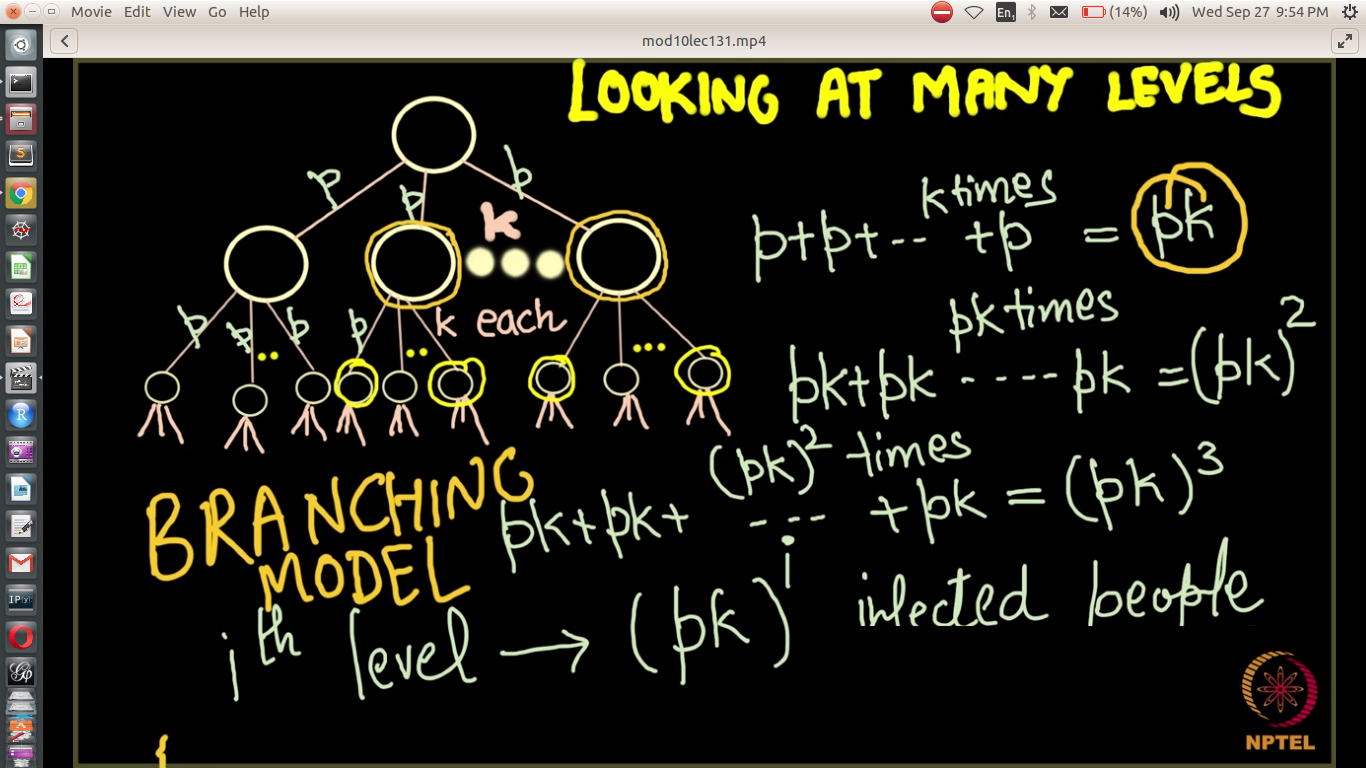 Movie Edit View Go Help
En1 (14%) Wed Sep 27 9:54 PM
mod10lec131.mp4
LOOKING AT MANY LEVELS
p p p
k
k times
p+p+-- +p = pk
p p p p
k each
pk times
pk+pk ----- pk =(pk)²
(pk)² times
pk+pk+ ---- +pk = (pk)³
BRANCHING
MODEL
ith level → (pk)^i infected people
NPTEL